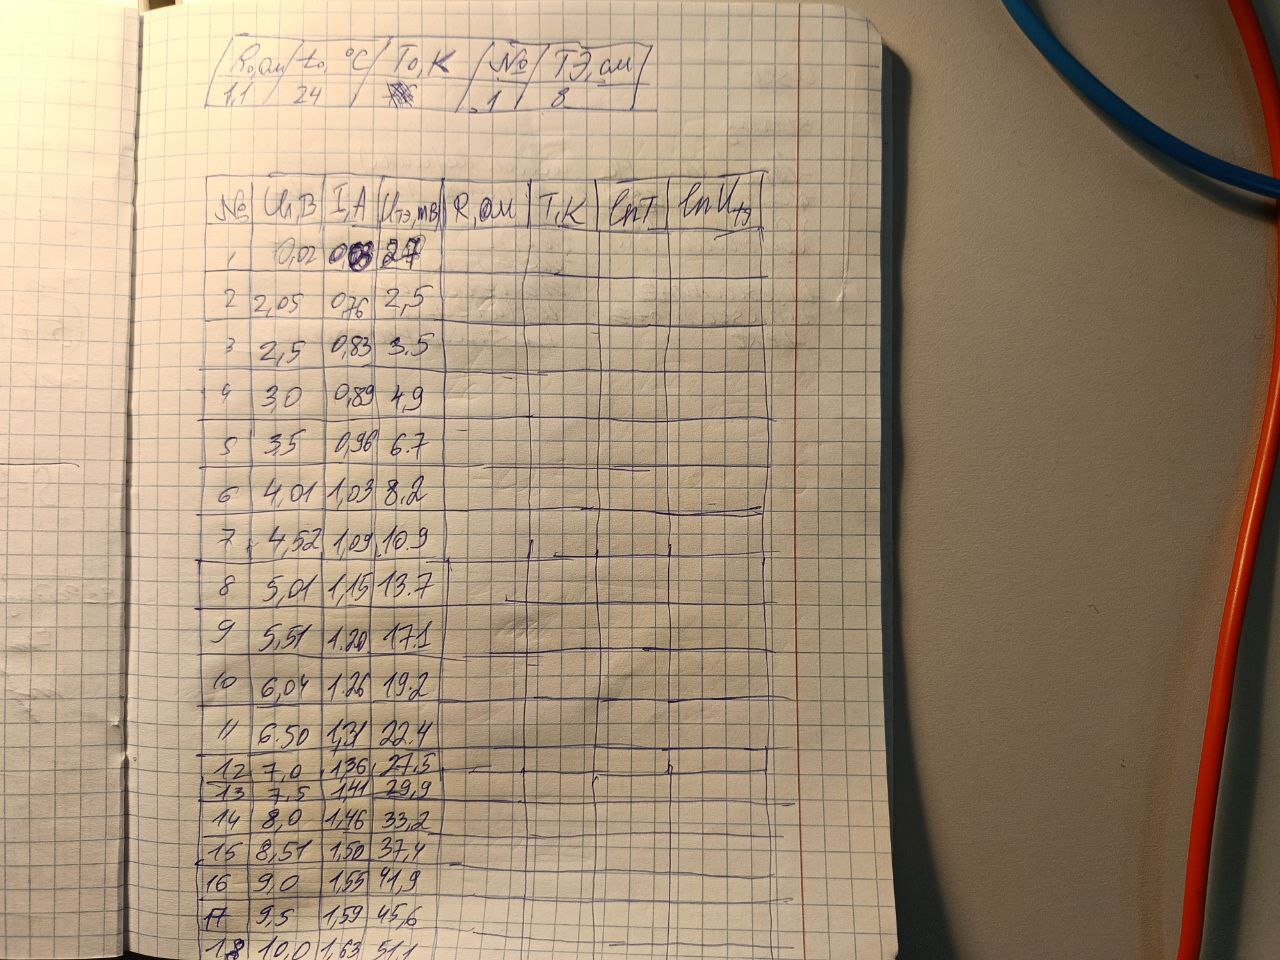 R₀, ом t₀, °C T₀, К № ТЭ, ом
1,1 24 1 8
№ Uл, В I, А Uтэ, mВ R, ом T, К lnT lnUтэ
1 0,02
2 2,05 0,76 2,5
3 2,5 0,83 3.5
4 3,0 0,89 4,9
5 3,5 0,96 6.7
6 4,01 1,03 8.2
7 4,52 1,09 10.9
8 5,01 1,15 13.7
9 5,51 1.20 17.1
10 6,04 1.26 19.2
11 6.50 1,31 22.4
12 7,0 1,36 27,5
13 7,5 1,41 29,9
14 8,0 1,46 33,2
15 8,51 1,50 37,4
16 9,0 1,55 41,9
17 9,5 1,59 45,6
18 10,0 1,63 51,1